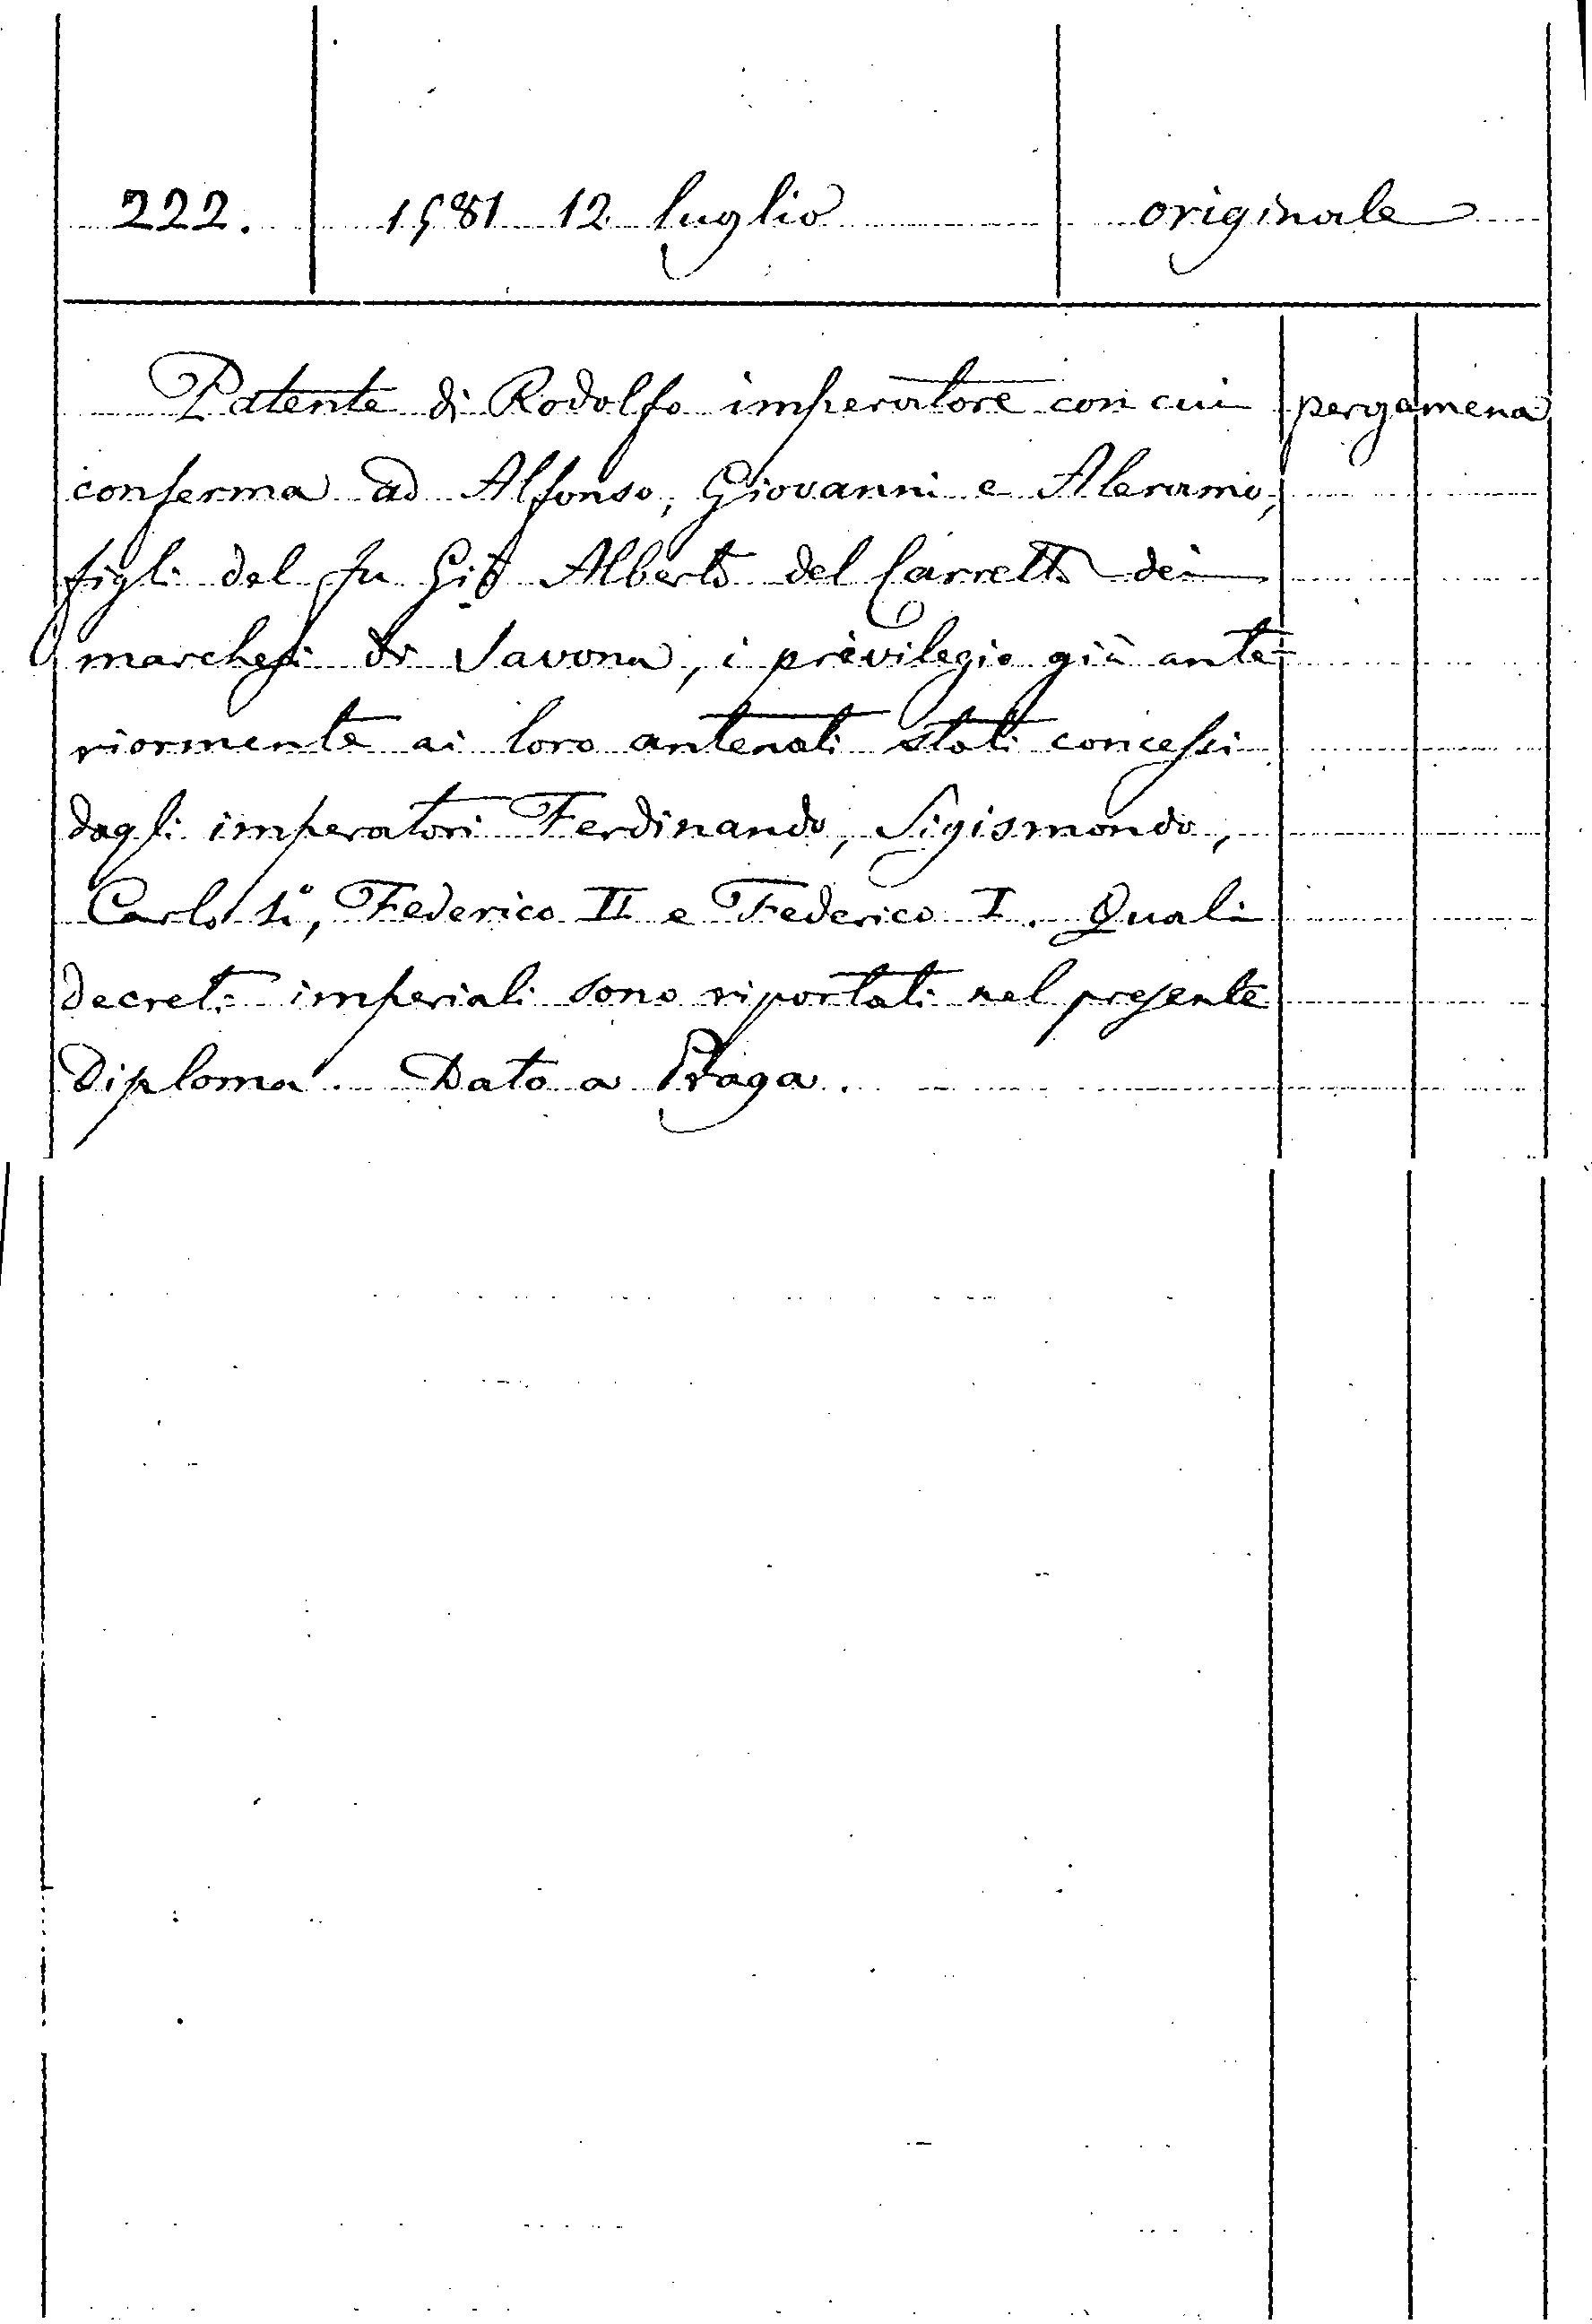 222. 1581 12 luglio originale
Patente di Rodolfo imperatore con cui pergamena
conferma ad Alfonso, Giovanni e Aleramo,
figli del fu Gio Alberto del Carretto dei
marchesi di Savona, i previlegio già ante-
riormente ai loro antenati stati concessi
dagli imperatori Ferdinando, Sigismondo,
Carlo Federico II e Federico I. Quali
decreti imperiali sono riportati nel presente
Diploma. Dato a Praga.